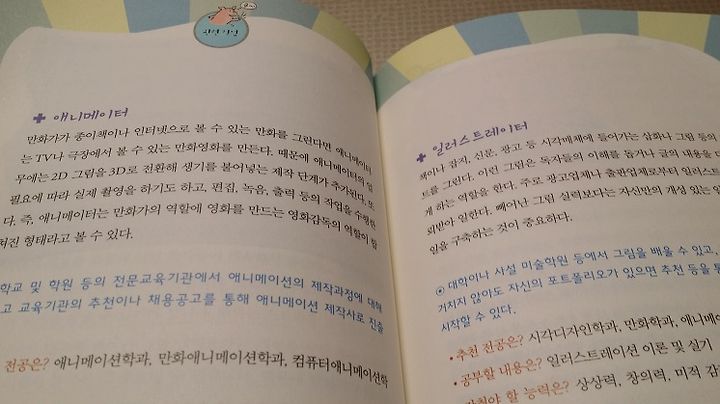 관련 직업
애니메이터
만화가가 종이책이나 인터넷으로 볼 수 있는 만화를 그린다면 애니메이터
는 TV나 극장에서 볼 수 있는 만화영화를 만든다. 때문에 애니메이터의 업
무에는 2D 그림을 3D로 전환해 생기를 불어넣는 제작 단계가 추가된다. 또
필요에 따라 실제 촬영을 하기도 하고, 편집, 녹음, 출력 등의 작업을 수행한
다. 즉, 애니메이터는 만화가의 역할에 영화를 만드는 영화감독의 역할이 합
쳐진 형태라고 볼 수 있다.
학교 및 학원 등의 전문교육기관에서 애니메이션의 제작과정에 대해
고 교육기관의 추천이나 채용공고를 통해 애니메이션 제작사로 진출
전공은? 애니메이션학과, 만화애니메이션학과, 컴퓨터애니메이션학
일러스트레이터
책이나 잡지, 신문, 광고 등 시각매체에 들어가는 삽화나 그림 등의
트를 그린다. 이런 그림은 독자들의 이해를 돕거나 글의 내용을 더
게 하는 역할을 한다. 주로 광고업체나 출판업체로부터 일러스트레
뢰받아 일한다. 빼어난 그림 실력보다는 자신만의 개성 있는
일을 구축하는 것이 중요하다.
대학이나 사설 미술학원 등에서 그림을 배울 수 있고,
거치지 않아도 자신의 포트폴리오가 있으면 추천 등을 통
시작할 수 있다.
•추천 전공은? 시각디자인학과, 만화학과, 애니메이
•공부할 내용은? 일러스트레이션 이론 및 실기
갖춰야 할 능력은? 상상력, 창의력, 미적 감